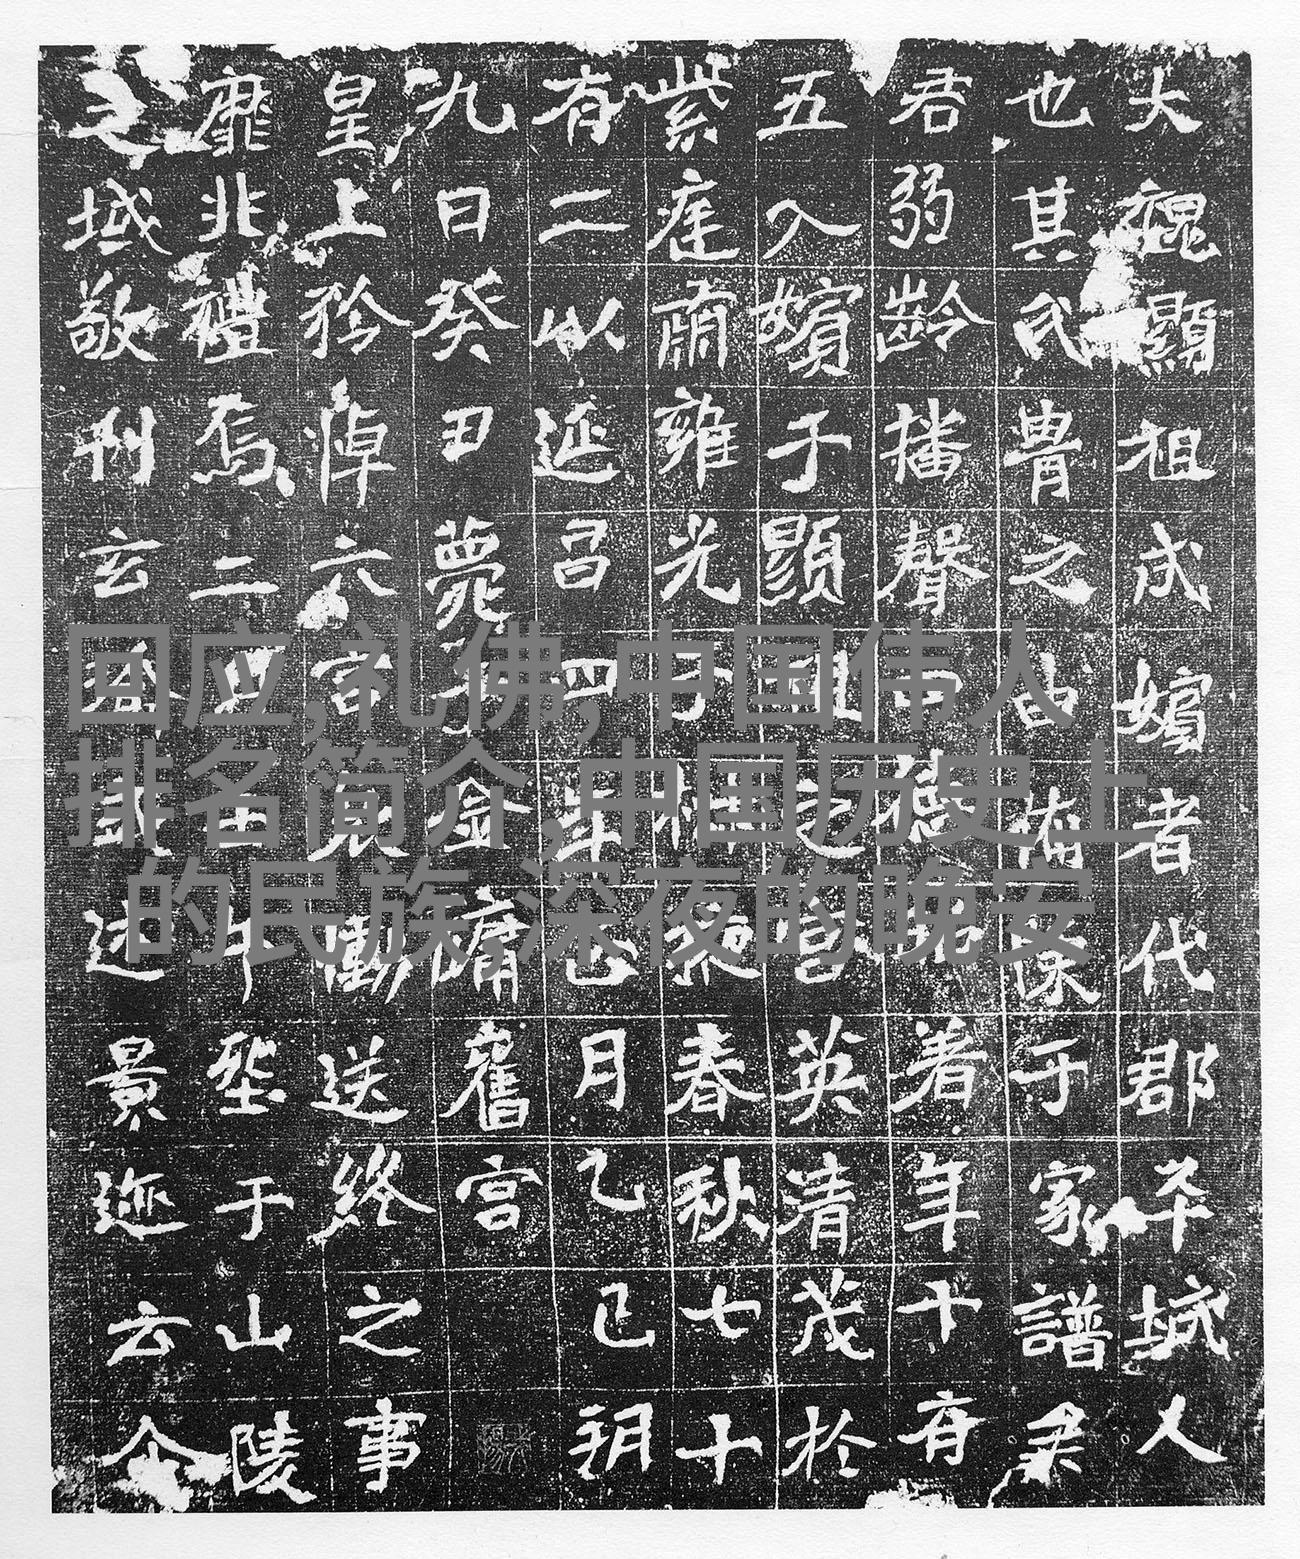 大魏顯祖成嬪者代郡平城人
也其氏胄之由備于家譜
君弱齡播聲德着年十有
五入嬪于顯祖之宮英清茂於
紫庭肅雍光于椒掖春秋七十
有二以延昌四年正月乙巳朔
九日癸丑薨于金墉舊宮
皇上矜悼六宮哀慟送終之事
靡非禮焉二于山陵
之域敬刊玄述景迹云尒
回应,礼佛,中国伟人
排名简介,中国历史上
的民族,深夜的晚安